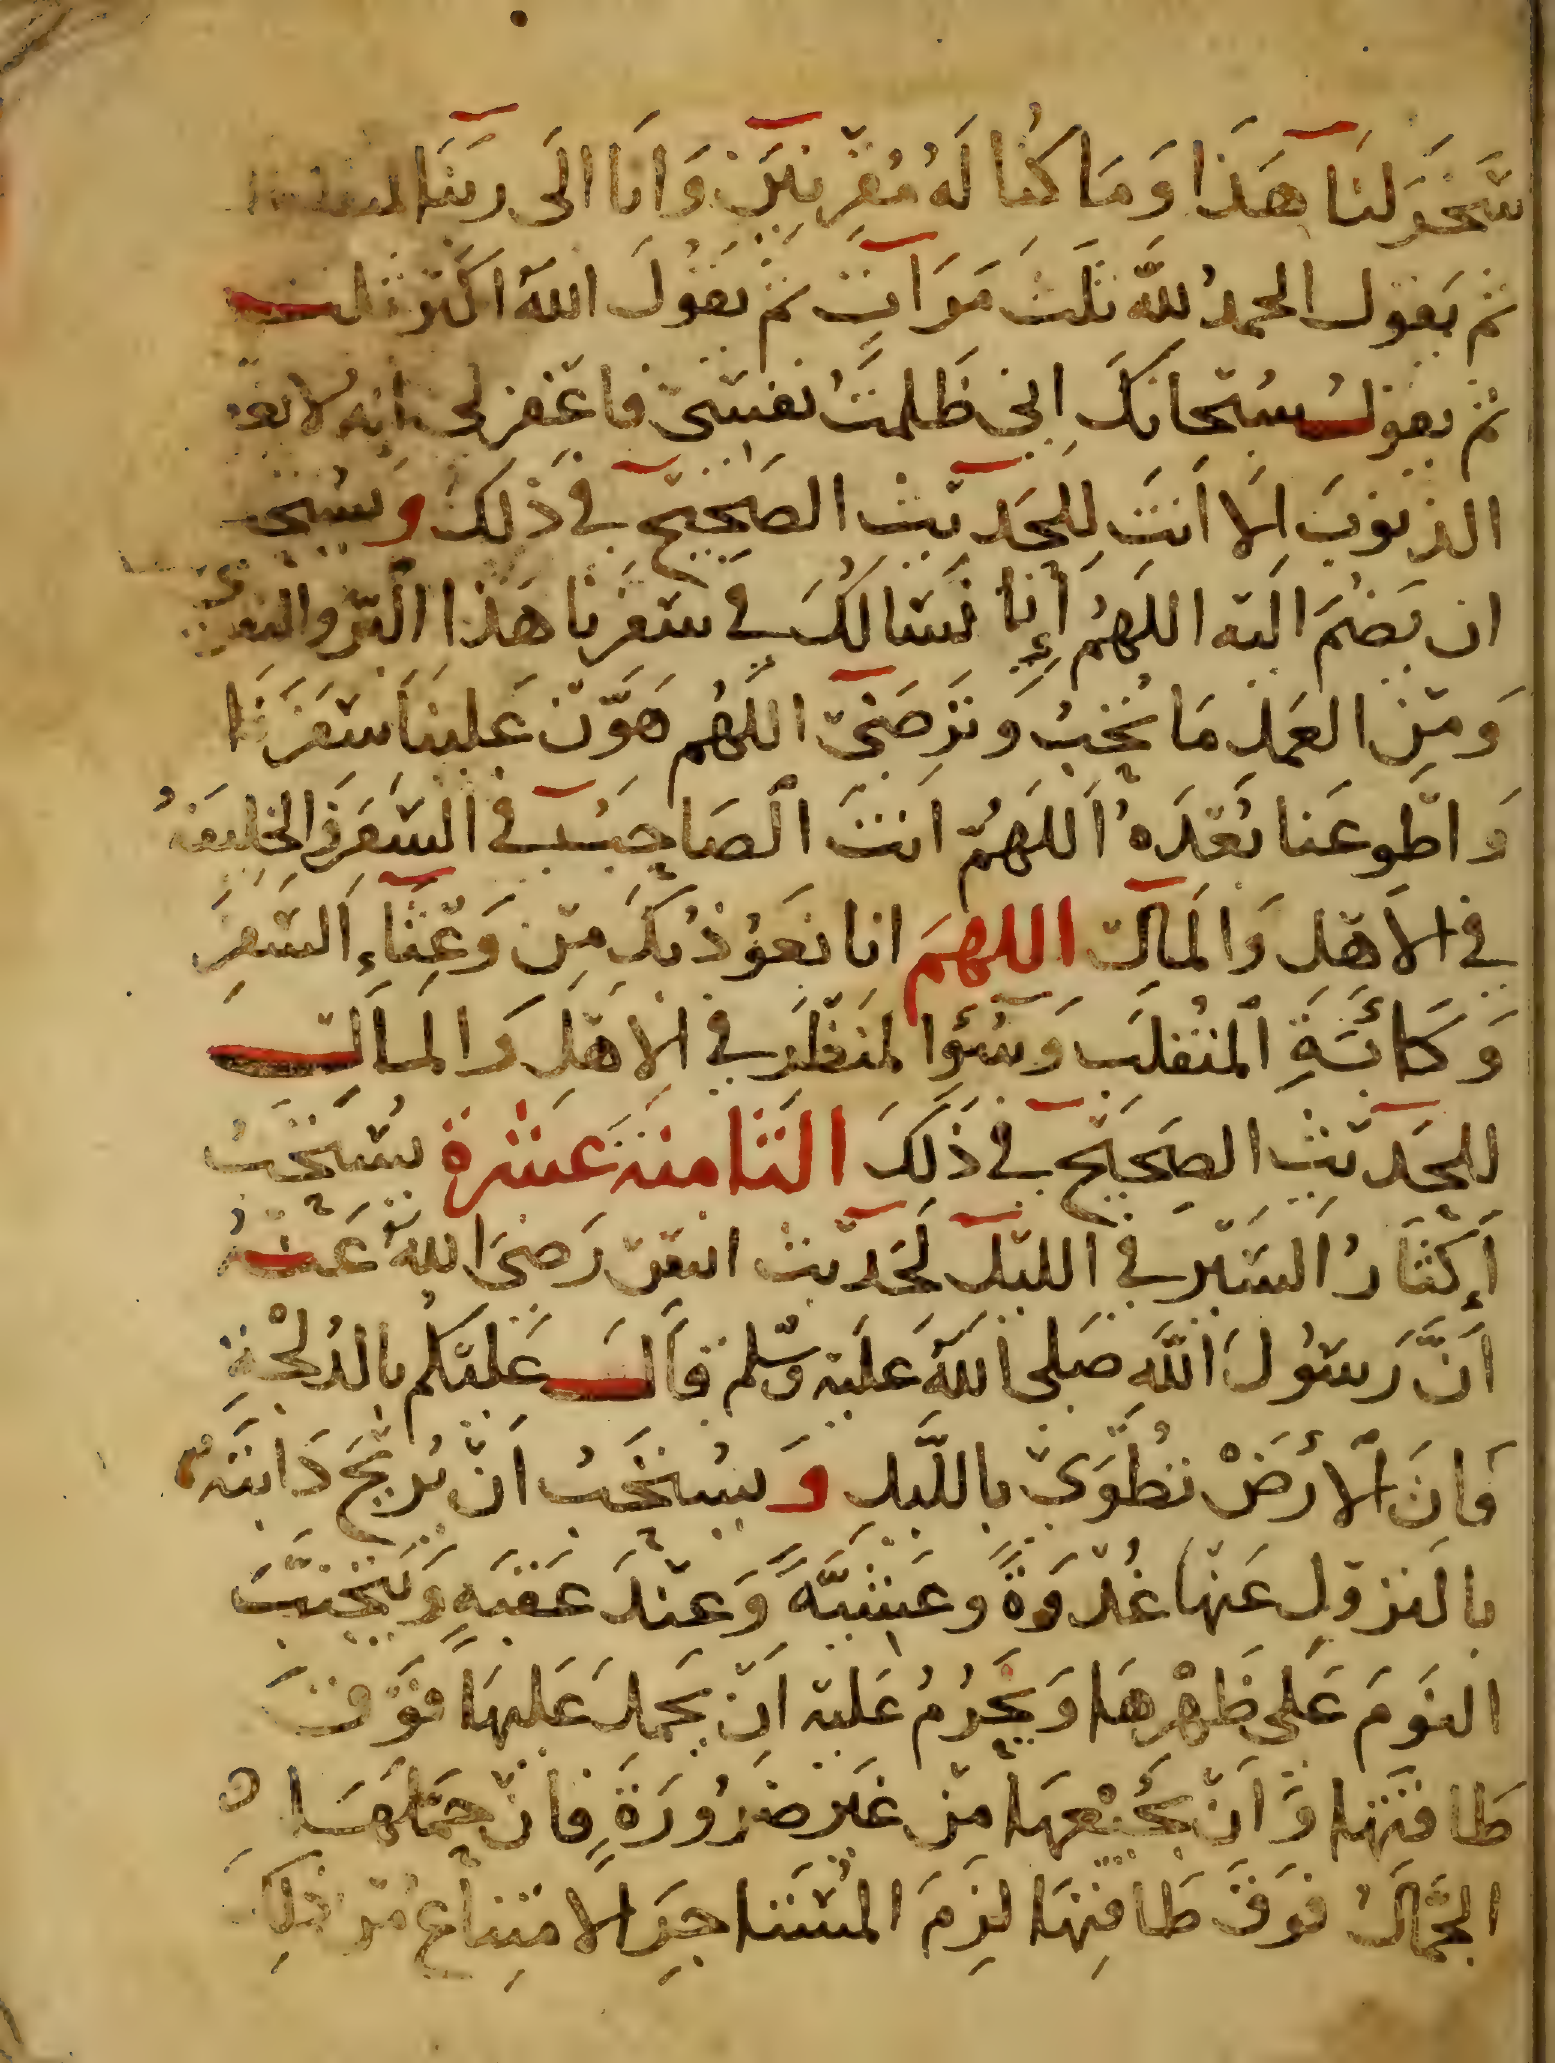 سَخَّرَ لَنَا هَذَا وَمَا كُنا لَهُ مُقرِنِيَن وَانا الَى رَبنَا لمنقلبون
ثم يَقول الحمدُ للَّه ثَلثَ مَرَاتٍ ثم يَقُولَ اللهَ اكبَر ثلث
ثم يقول سُبحَانكَ اِنى ظَلمتُ نفسى فاغفر لى انه لا يغفر
الذنوبَ اِلا اَنتَ لِلحَديث الصَحِيح فى ذَلك وَيسُتحب
ان يَضُمَ اليه اللهمُ إِنا نَسَالُكَ فى سَفَرنا هَذا اَلبر والتقوى
وَمِن العَمل مَا نُحبُ وَتَرضَى اللهُم هَوّن عَلينَا سَفَرَنَا
وَاطو عَنا بُعْدَهُ اَللهُمّ انتَ اَلصَاحِبُ فى السَفَر وَالخلِيفَهُ
فى الاَهلِ وَالمَال اللهمَ انا نَعُوذ بكَ مِن وَعثَاءِ اَلسَفَرِ
وَكَأبَةِ المنُقلَب وَسُوء المنَظَرِ فى الاهَلِ وَالمَالِ
للحَديثِ الصَحِيح فى ذَلكَ الثَامنَة عَشرة يسُتَحَبُ
إِكثَارُ السَير فى الليل لحَديث انس رَضىَ اللهُ عَنهُ
اَنَّ رَسُولَ اللَّه صَلى اللهَ عَليه وَسلم قَالَ عَليَكُم بالدُلجْةِ
فَانَ اَلأرَضْ تُطْوَى باللَّيل وَيسُتحَبُ اَنّ يُريحَ دَابتَه
بالنزولِ عَنهَا غُدْوَةً وعَشيَّهً وَعندَ عَقبَهٍ وَيَتجنبَّ
النَومَ عَلى ظَهْرِهَا وَيَحَرُمُ عَليَه اَن يحملَ عَليهَا فَوقَ
طَاقتَهَا وَانّ يجُيعهَا مِن غَير ضَرُورَةٍ فان حَملَهَا
الجَمَالُ فوَقَ طَاقتِهَا لزِمَ المُسَتاجِرَ الامتِناع مْن ذلكَ